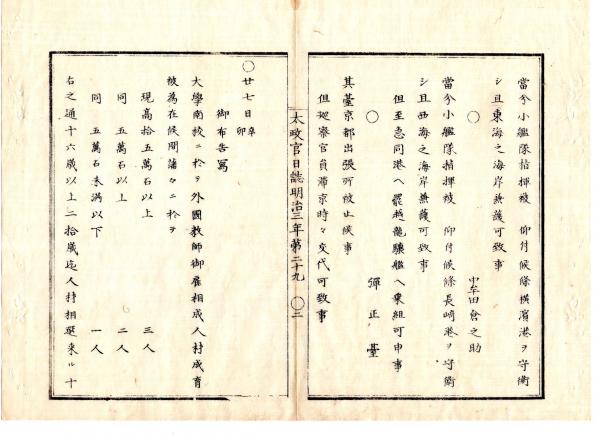 當分小艦隊指揮被　仰付候條横濱港ヲ守衞
シ且東海之海岸兼護可致事
○
中牟田倉之助
當分小艦隊指揮被　仰付候條長崎港ヲ守衞
シ且西海之海岸兼護可致事
但至急同港ヘ罷越龍驤艦ヘ乗組可申事
○
彈正臺
其臺京都出張所被止候事
但巡察官員滯京時々交代可致事
太政官日誌明治三年第二十九
○二
○廿七日辛卯
御布告寫
大學南校ニ於テ外國教師御雇相成人材成育
被為在候間諸々ニ於テ
現高拾五萬石以上　三人
同　五萬石以上　二人
同　五萬石未満以下　一人
右之通十六歳以上二拾歳迄人材相選来ル十